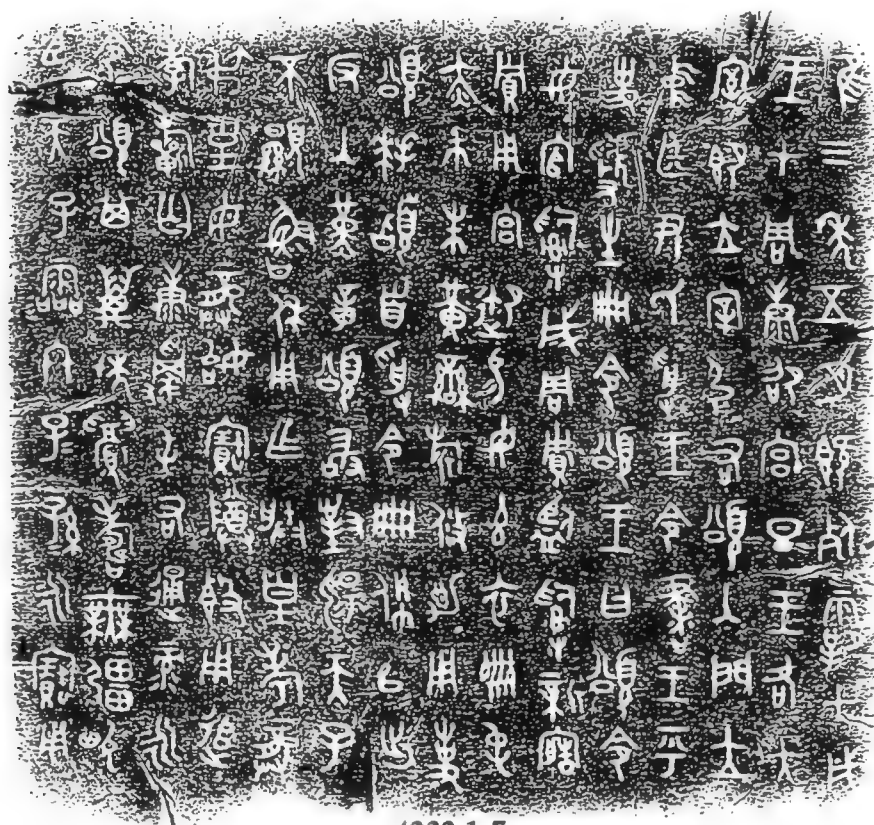 隹三年五月既死霸甲戌
王才周康卲宮旦王各大
室即立宰引右頌入門立
中廷尹氏受王令書王乎
史虢生冊令頌王曰頌令
女官𤔲成周貯監𤔲新造
貯用宮御易女玄衣黹屯
赤巿朱黃䜌旂攸勒用事
頌拜𩒨首受令冊佩㠯出
反入堇章頌敢對揚天子
不顯魯休用乍朕皇考龏
弔皇母龏始寶尊簋用追
孝𣄨匄康𠭯屯右通彔永
令頌其萬年眉壽無疆畯
臣天子霝冬子=孫=永寶用